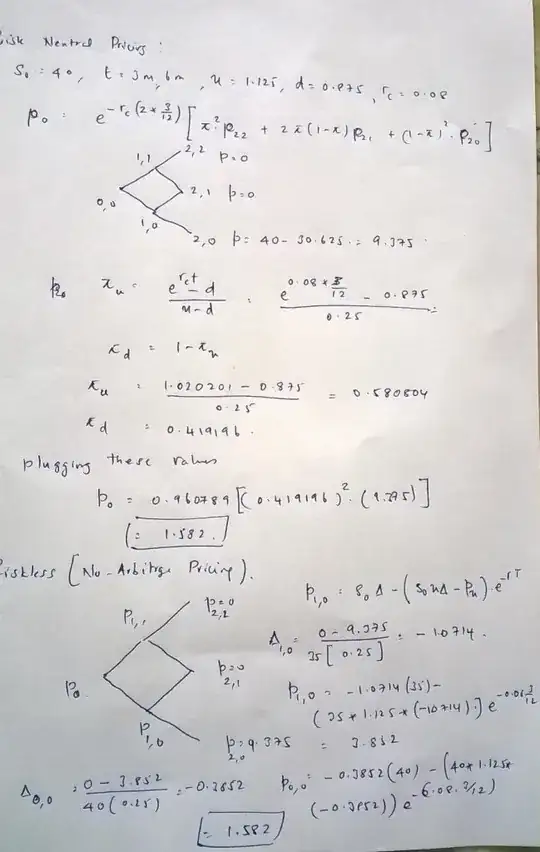 isk Neutral Pricing :
S₀ = 40, t = 3m, 6m, u = 1.125, d = 0.875, r_c = 0.08
p₀ = e^{-r_c(2*3/12)} [π²p₂₂ + 2π(1-π)p₂₁ + (1-π)²·p₂₀]
2,2 p=0
1,1
2,1 p=0
0,0
1,0
2,0 p= 40 - 30.625 = 9.375
p₀ π_u = (e^{r_c t} - d)/(u-d) = (e^{0.08*3/12} - 0.875)/0.25 =
π_d = 1-π_u
π_u = (1.020201 - 0.875)/0.25 = 0.580804
π_d = 0.419196.
plugging these values
p₀ = 0.960789 [(0.419196)²·(9.375)]
= 1.582.
iskless [No-Arbitrage Pricing].
p=0
2,2
P₁,₁
P₀
p=0
2,1
P₁,₀
p=9.375
2,0
P₁,₀ = S₀Δ - (S₀uΔ - P_u)·e^{-rT}
Δ₁,₀ = (0 - 9.375)/(35[0.25]) = -1.0714.
P₁,₀ = -1.0714(35) -
(35*1.125*(-1.0714)] e^{-0.08 3/12}
= 3.852
Δ₀,₀ = (0 - 3.852)/(40(0.25)) = -0.3852
P₀,₀ = -0.3852(40) - (40*1.125*
(-0.3852)) e^{-0.08·3/12}
= 1.582